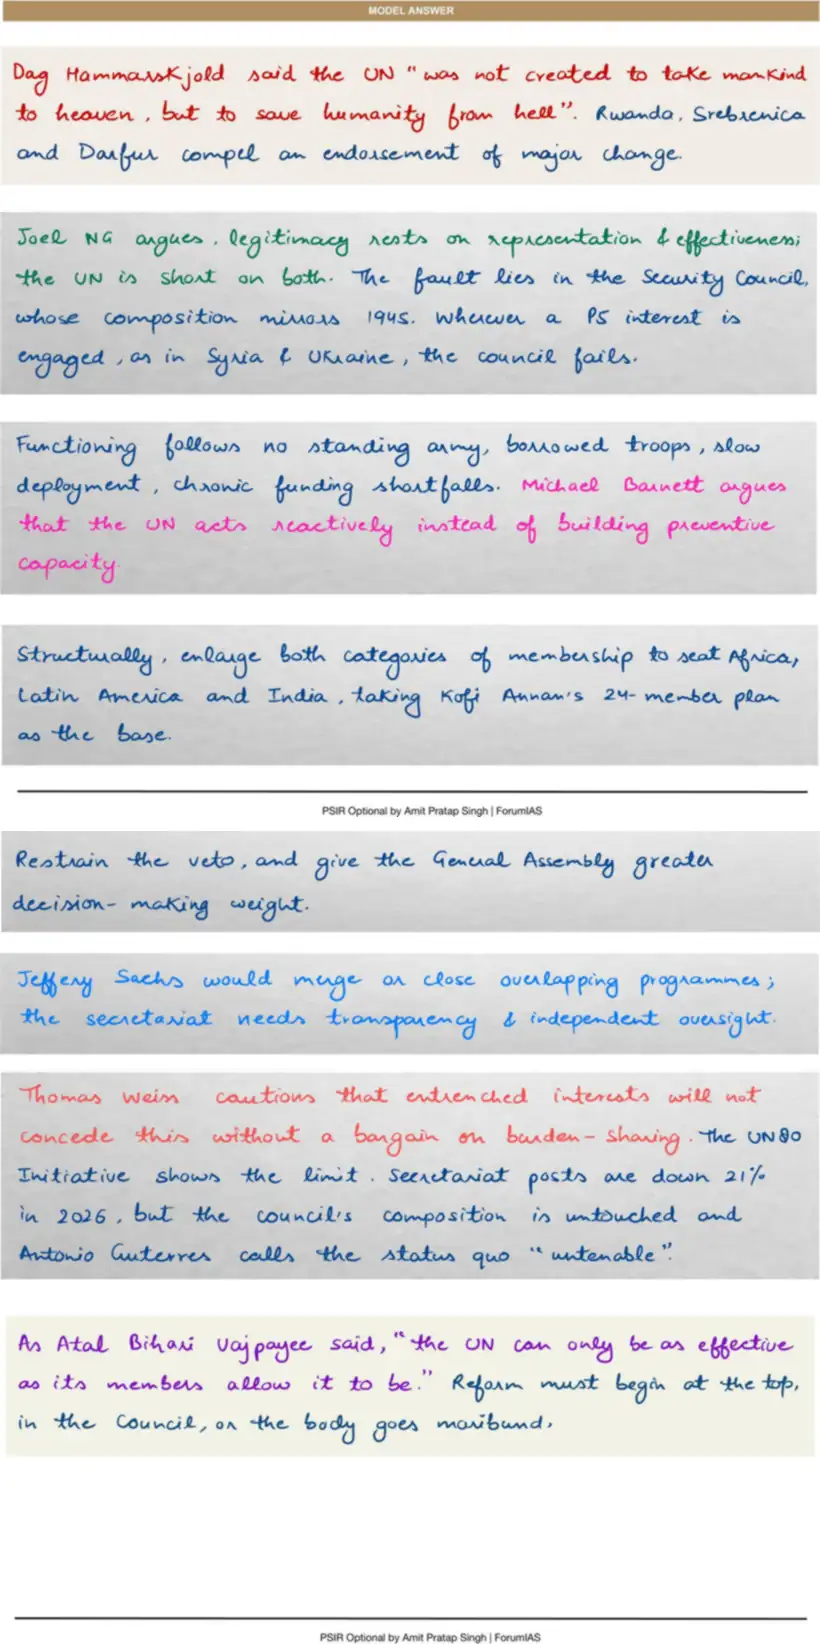 MODEL ANSWER
Dag Hammarskjold said the UN "was not created to take mankind
to heaven, but to save humanity from hell". Rwanda, Srebrenica
and Darfur compel an endorsement of major change.
Joel NG argues, legitimacy rests on representation & effectiveness;
the UN is short on both. The fault lies in the Security Council,
whose composition mirrors 1945. Wherever a P5 interest is
engaged, as in Syria & Ukraine, the council fails.
Functioning follows no standing army, borrowed troops, slow
deployment, chronic funding shortfalls. Michael Barnett argues
that the UN acts reactively instead of building preventive
capacity.
Structurally, enlarge both categories of membership to seat Africa,
Latin America and India, taking Kofi Annan's 24-member plan
as the base.
PSIR Optional by Amit Pratap Singh | ForumIAS
Restrain the veto, and give the General Assembly greater
decision-making weight.
Jeffery Sachs would merge or close overlapping programmes;
the secretariat needs transparency & independent oversight.
Thomas Weiss cautions that entrenched interests will not
concede this without a bargain on burden-sharing. The UN80
Initiative shows the limit. Secretariat posts are down 21%
in 2026, but the council's composition is untouched and
Antonio Guterres calls the status quo "untenable".
As Atal Bihari Vajpayee said, "the UN can only be as effective
as its members allow it to be." Reform must begin at the top,
in the Council, or the body goes moribund.
PSIR Optional by Amit Pratap Singh | ForumIAS